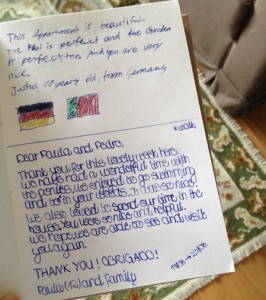 This Apartment is beautiful.
The Pool is perfect and the Garden
is perfect too. And you are very
nice.
Justus, 10 years old, from Germany
Dear Paula and Pedro,
Thank you for this lovely week here.
We have had a wonderful time with
the ponies, we enjoyed to go swimming
and be in your It was so nice!
We also loved to spend our time in the
house. You were so nice and helpful.
We hope we are able to see and visit
you again.
THANK YOU! OBRIGADO!
Paula (12) and family